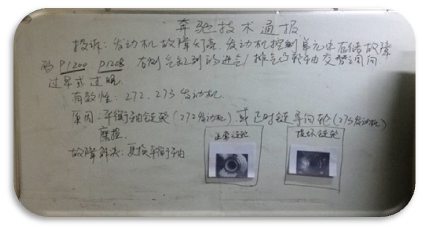 奔驰技术通报
投诉：发动机故障灯亮 发动机控制单元中存储故障
码 P1200 P1208 右侧气缸列的进气/排气凸轮轴交替朝向
过早或过晚
有效性：272.273 发动机
原因：平衡轴链轮（272发动机）或正时链导向轮（273发动机）
磨损
故障解决：更换平衡轴
正常链轮
损坏链轮